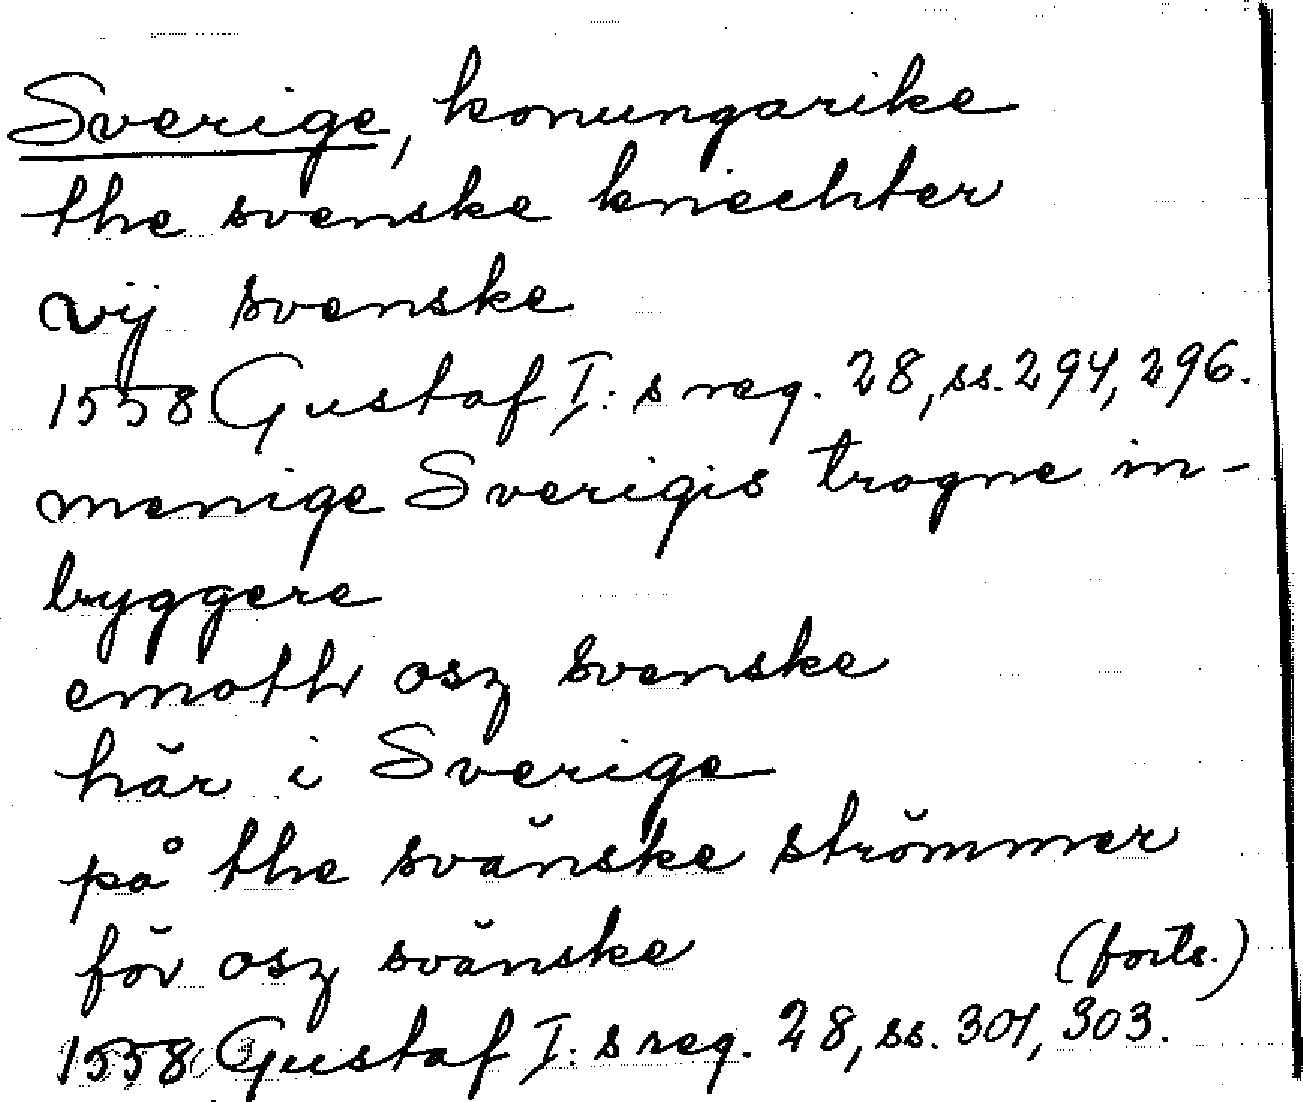 Sverige, konungarike
the svenske knechter
vij svenske
1558 Gustaf I:s reg. 28, ss. 294, 296.
menige Sverigis trogne in-
byggere
emoth osz svenske
här i Sverige
på the svänske strömmer
för osz svänske (forts.)
1558 Gustaf I:s reg. 28, ss. 301, 303.